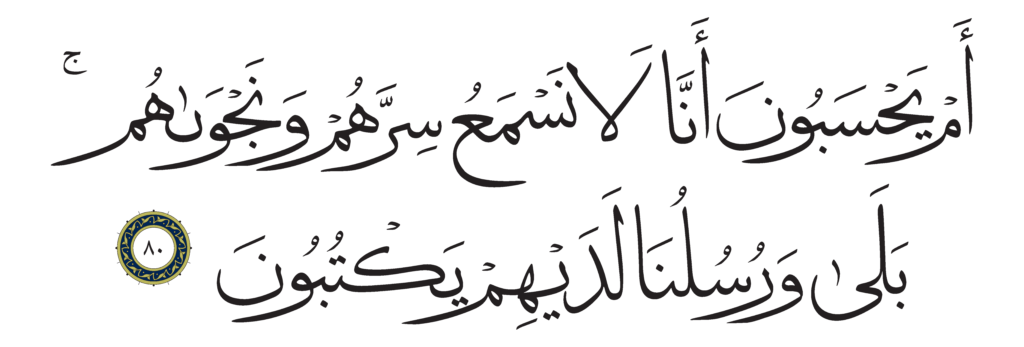 أَمْ يَحْسَبُونَ أَنَّا لَا نَسْمَعُ سِرَّهُمْ وَنَجْوَىٰهُم ۚ
بَلَىٰ وَرُسُلُنَا لَدَيْهِمْ يَكْتُبُونَ ٨٠